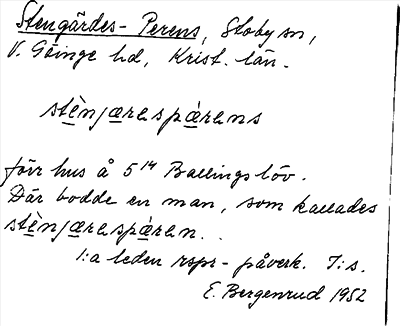 Stengårdes-Perens, Stoby sn,
V. Göinge hd, Krist. län.
stènjæraspárens
förr hus å 5¹⁴ Ballingslöv.
Där bodde en man, som kallades
stènjæraspáren..
1:a leden rspr-påverk. T:s.
E. Bergenrud 1952